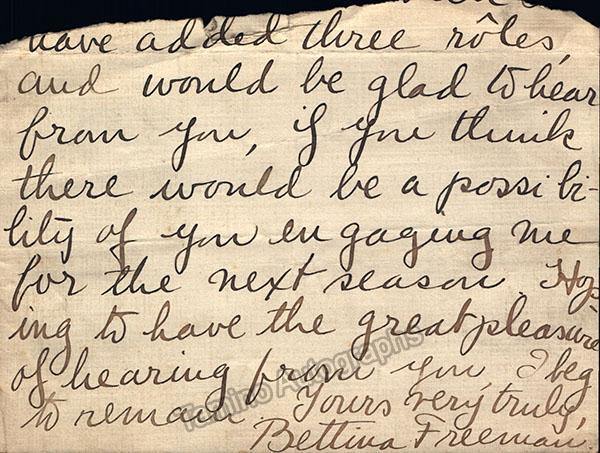 have added three rôles,
and would be glad to hear
from you, if you think
there would be a possibi-
lity of you engaging me
for the next season. Hop-
ing to have the great pleasure
of hearing from you I beg
to remain Yours very truly,
Bettina Freeman.
Tamino Autographs